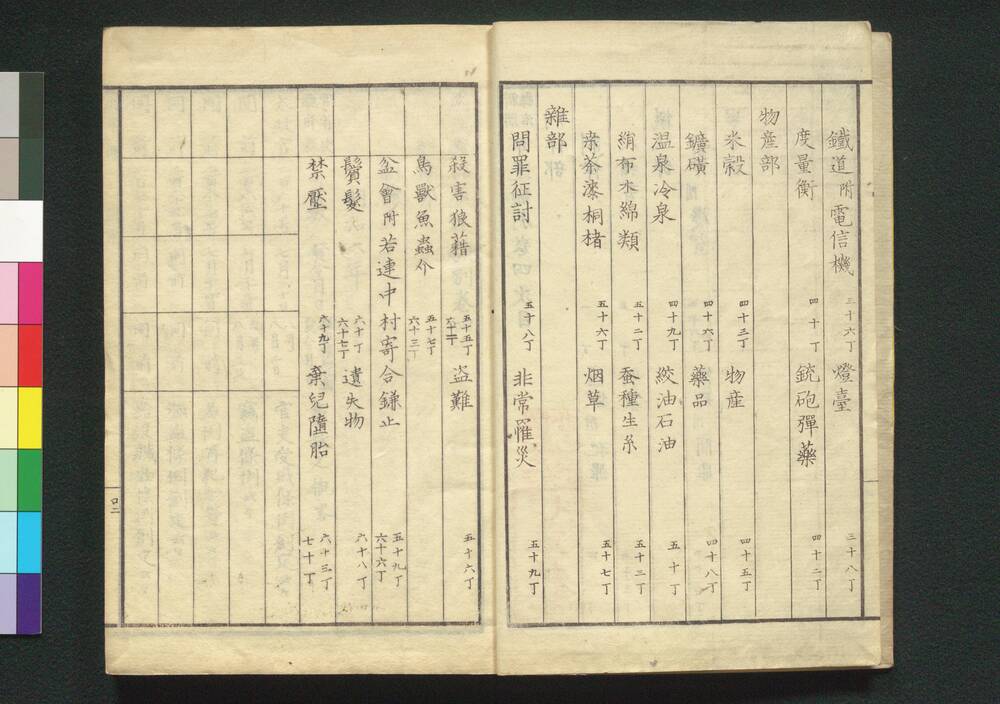 鐵道附電信機 三十六丁 燈臺 三十八丁
度量衡 四十丁 銃砲彈藥 四十二丁
物産部
米穀 四十三丁 物産 四十五丁
鑛礦 四十六丁 藥品 四十八丁
温泉冷泉 四十九丁 絞油石油 五十丁
絹布木綿類 五十二丁 蚕種生糸 五十三丁
桒茶漆桐楮 五十六丁 烟草 五十七丁
雜部
問罪征討 五十八丁 非常罹災 五十九丁
殺害狼藉 五十五丁 盗難 五十六丁
鳥獸魚蟲介 五十七丁 六十三丁
盆會附若連中村寄合鎌止 五十九丁 六十六丁
鬢髮 六十丁 六十七丁 遺失物 六十八丁
禁壓 六十九丁 棄兒隨胎 六十三丁 七十丁